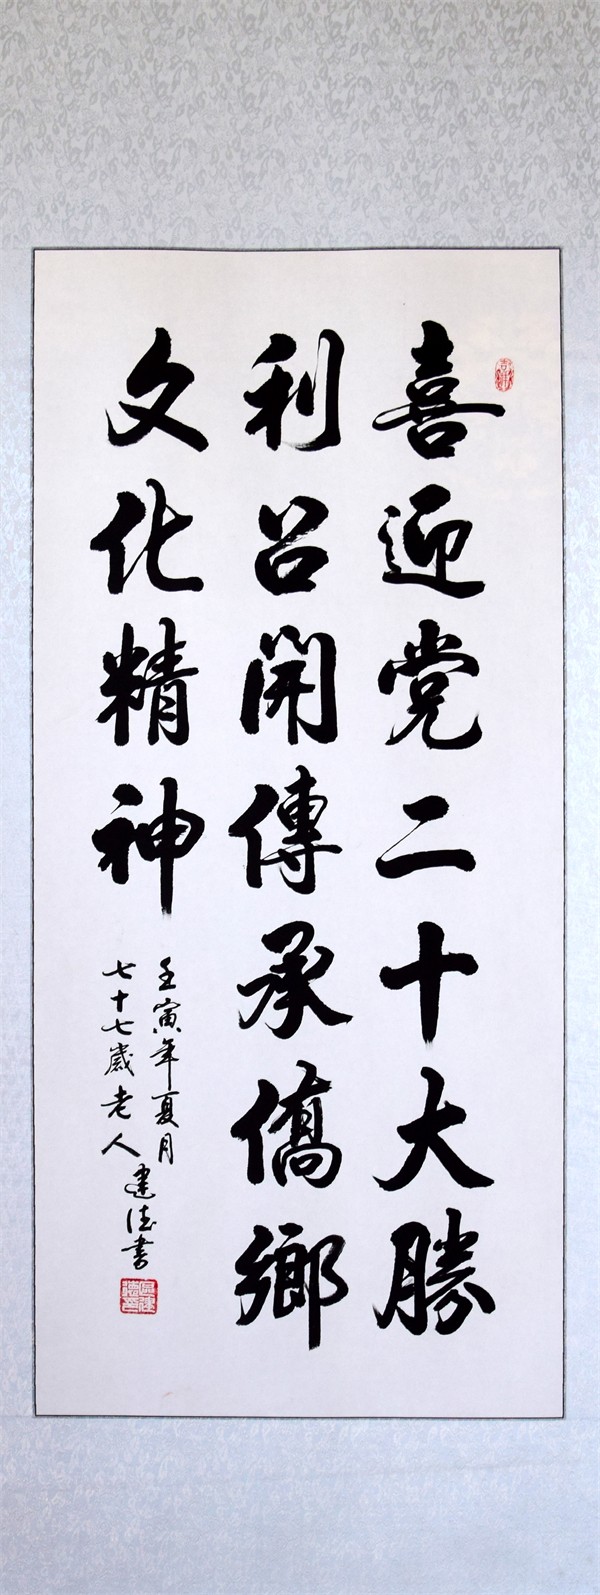 喜迎党二十大勝
利召開傳承僑鄉
文化精神
壬寅年夏月
七十七歲老人
建德書